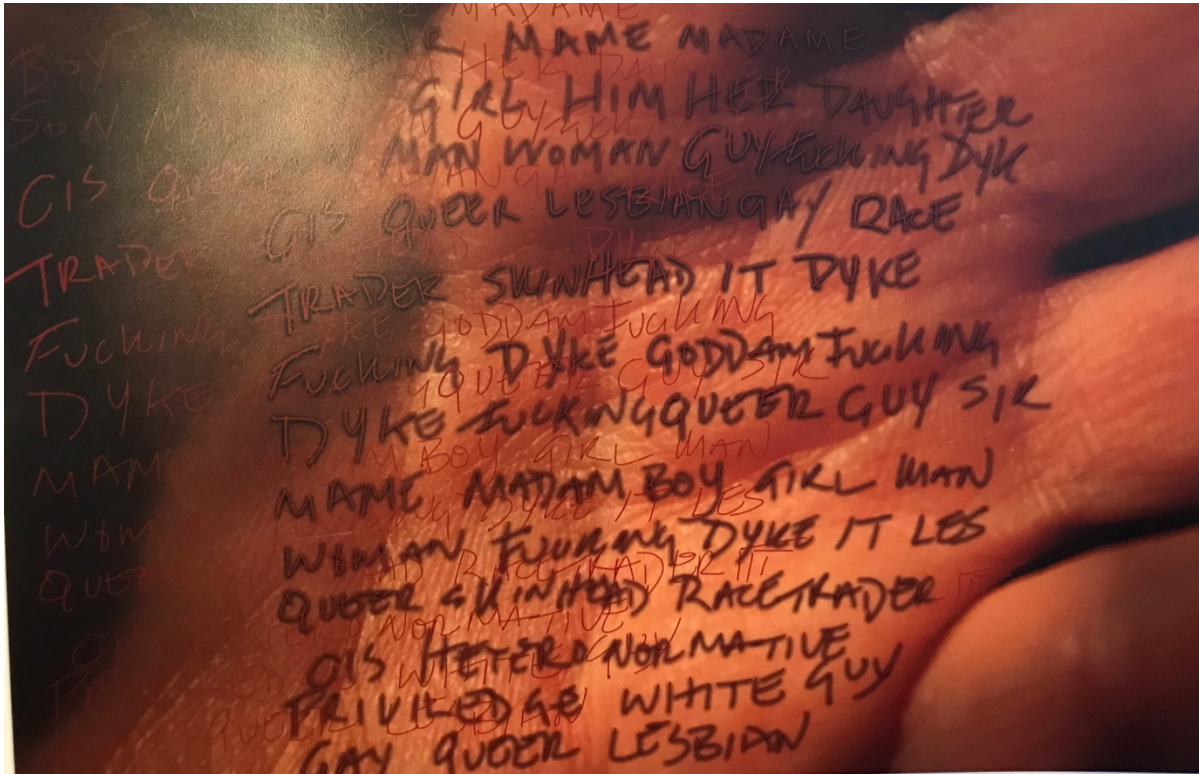 MADAME
SIR MAME MADAME
BOY GIRL HIM HER DAUGHTER
SON MAN WOMAN GUY FUCKING DYK
CIS QUEER LESBIAN GAY RACE
TRADER SKINHEAD IT DYKE
FUCKING DYKE GODDAM FUCKING
DYKE FUCKINGQUEER GUY SIR
MAME MADAM BOY GIRL MAN
WOMAN FUCKING DYKE IT LES
QUEER SKINHEAD RACETRADER IT
CIS HETERO NORMATIVE
PRIVILEDGE WHITE GUY
GAY QUEER LESBIAN